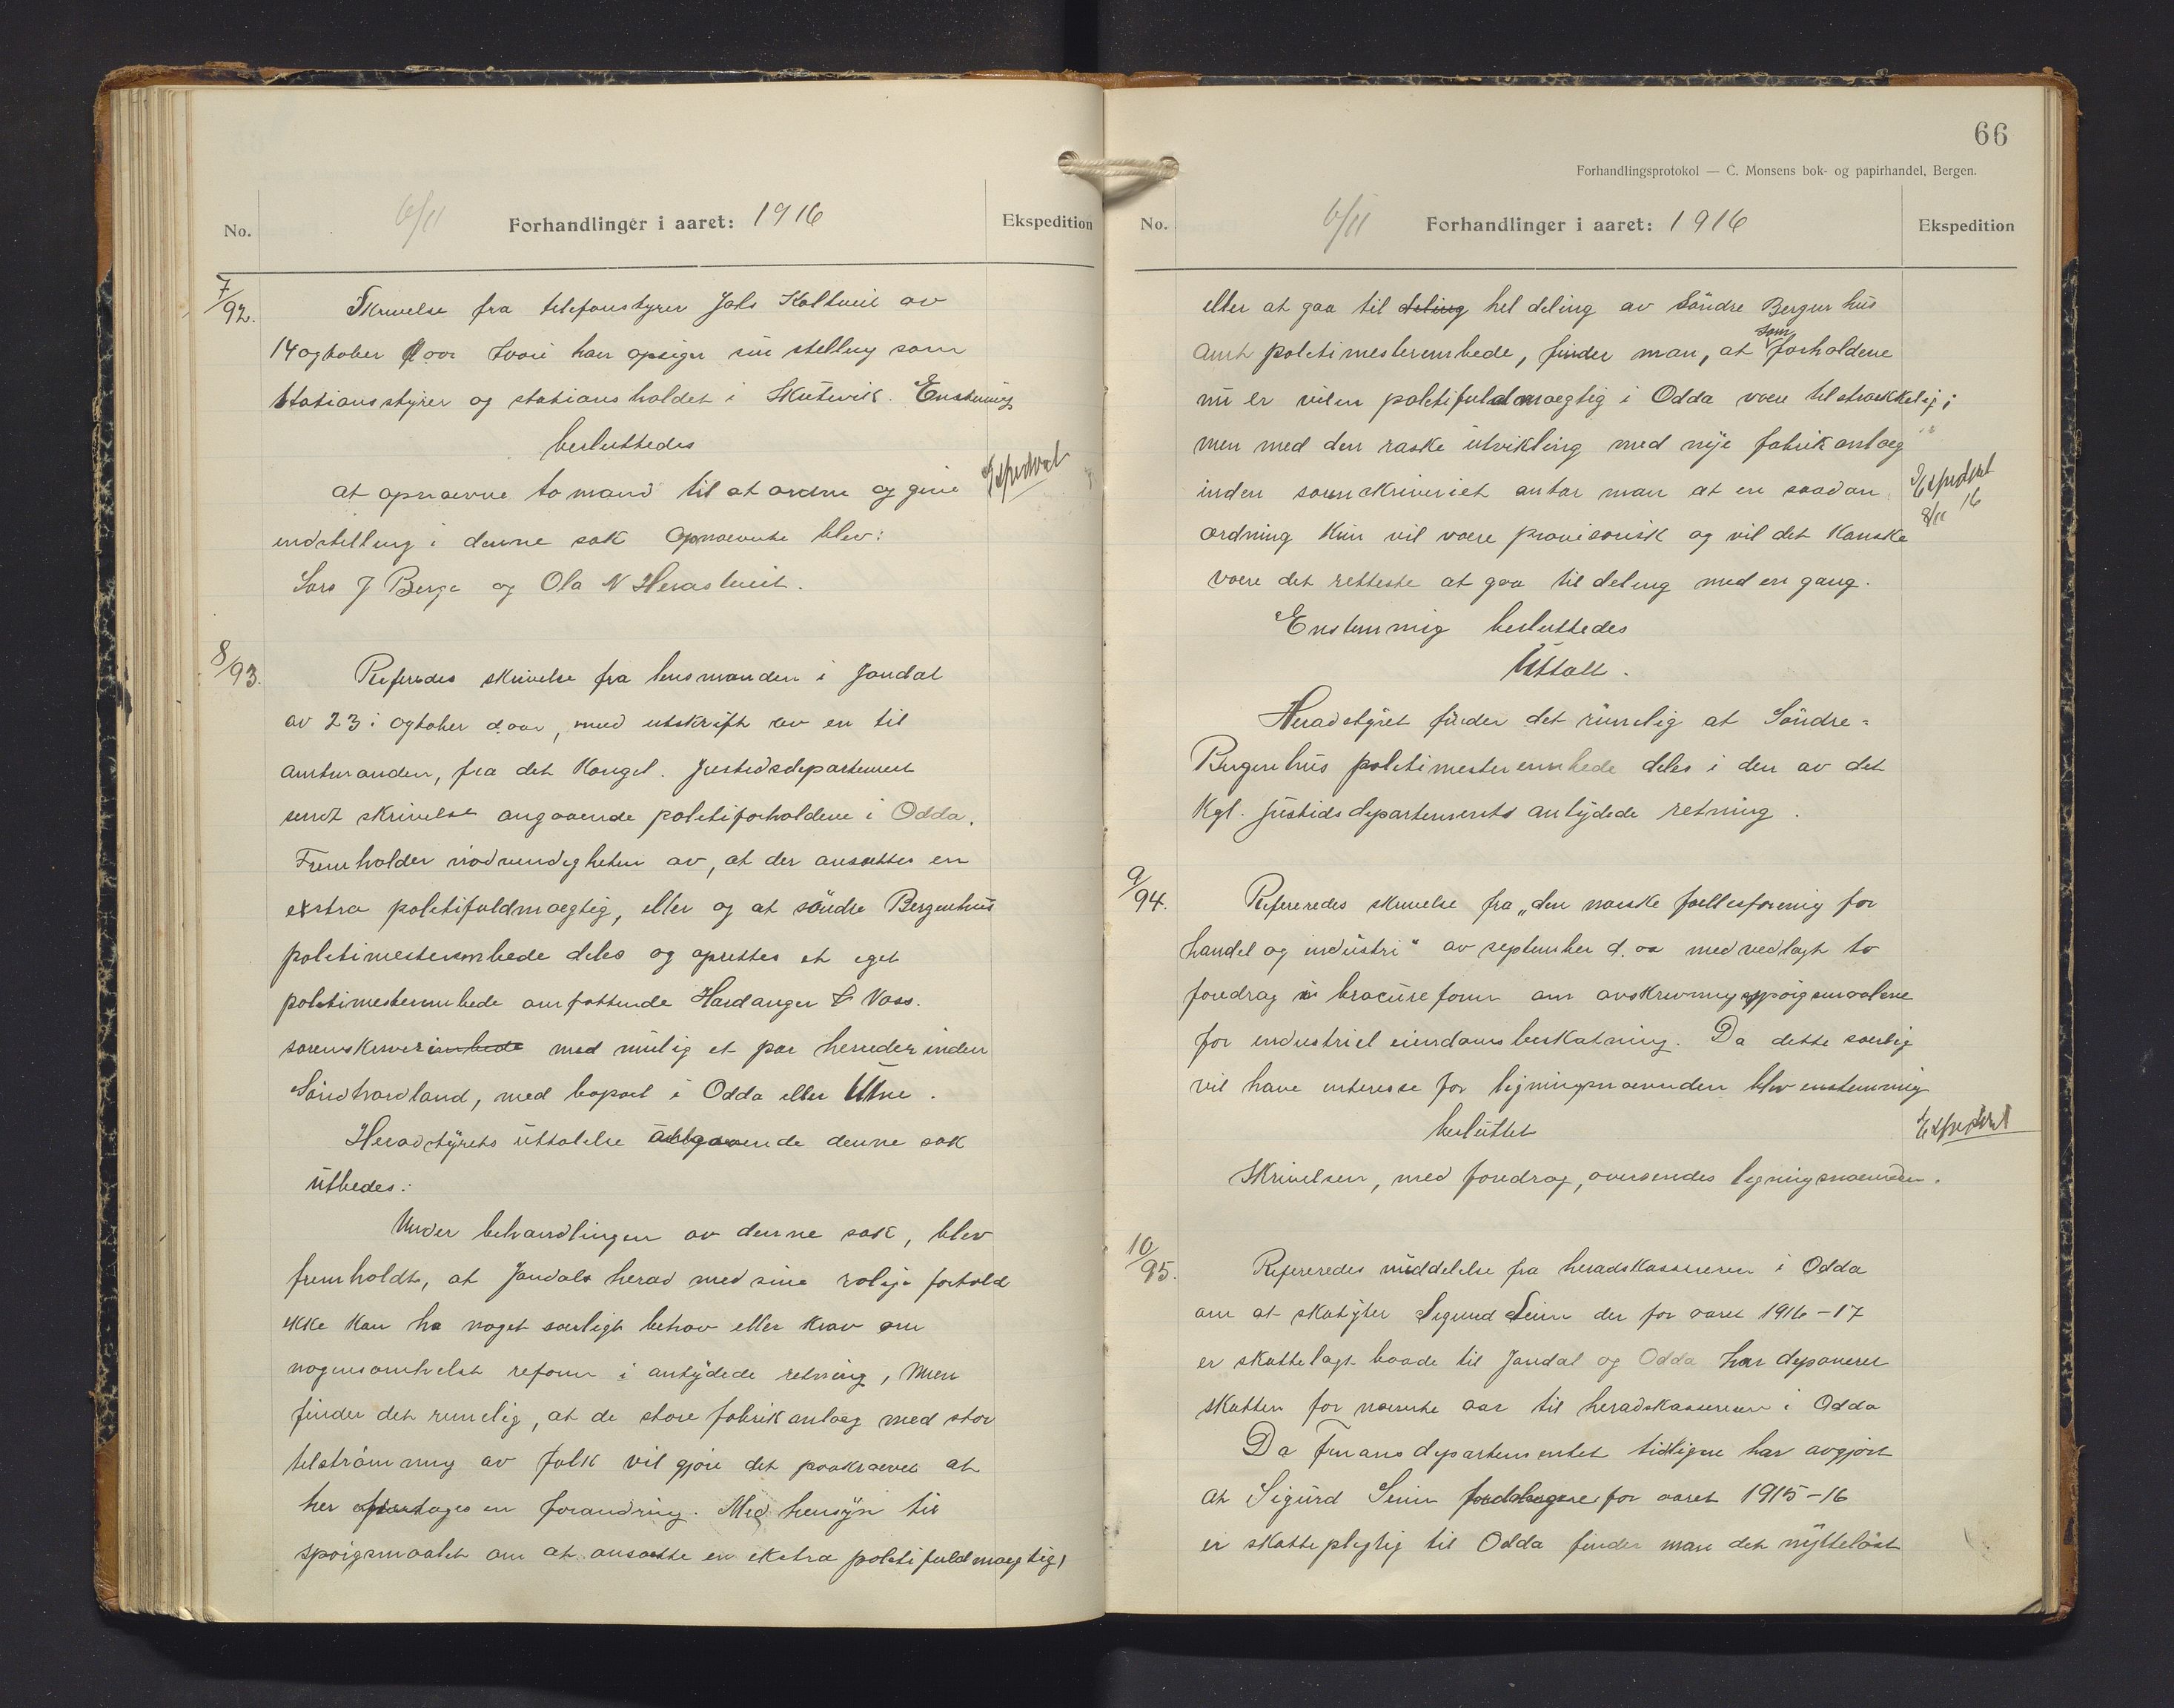 No.
6/11
Forhandlinger i aaret: 1916
Ekspedition
7/92.
Skrivelse fra telefonstyrer Jahs Kaltveit av
14 ogtober d aar hvori han opsiger sin stelling som
Stationsstyrer og stationsholdet i Skutevik. Enstemmig
besluttedes
at opnævne to mand til at ordne og give
Expedert
indstelling i denne sak Opnævnte blev:
Lars J Berge og Ola N Herastveit.
8/93.
Refereredes skrivelse fra lensmanden i Jondal
av 23 i ogtober d. aar, med utskrift av en til
amtmanden, fra det Kongel. Justisdepartement
sendt skrivelse angaaende politiforholdene i Odda.
Fremholder nödvendigheten av, at der ansættes en
extra politifuldmægtig, eller og at söndre Bergenhus
politimesterembede deles og oprettes et eget
politimesterembede omfattende Hardanger & Voss.
sorenskriverimbede med mulig et par herreder inden
Söndhordland, med bopæl i Odda eller Utne.
Heradstyrets uttalelse angaaende denne sak
utbedes:
Under behandlingen av denne sak, blev
fremholdt, at Jondals herad med sine rolige forhold
ikke kan ha noget særligt behov eller krav om
nogensomhelst reform i antydede retning, men
finder det rimelig, at de store fabrikanlæg med stor
tilströmning av folk vil gjöre det paakrævet at
her foretages en forandring. Med hensyn til
spörgsmaalet om at ansætte en ekstra politifuldmægtig,
66
Forhandlingsprotokol — C. Monsens bok- og papirhandel, Bergen.
No.
6/11
Forhandlinger i aaret: 1916
Ekspedition
eller at gaa til deling hel deling av Söndre Bergenhus
amt politimesterembede, finder man, at som forholdene
nu er vil en politifuldmægtig i Odda være tilstrækkelig;
men med den raske utvikling med nye fabrikanlæg
inden sorenskriveriet antar man at en saadan
Expedert
8/11 16
ordning kun vil være provisorisk og vil det kanske
være det retteste at gaa til deling med en gang.
Enstemmig besluttedes
Uttalt.
Heradstyret finder det rimelig at Söndre-
Bergenhus politimesterembede deles i den av det
Kgl. Justisdepartements antydede retning.
9/94.
Refereredes skrivelse fra „den norske fællesforenig for
handel og industri" av september d. aa med vedlagt to
foredrag i brocureform om avskrivningsspörgsmaalene
for industriel eiendomsbeskatning. Da dette særlig
vil have interesse for ligningsnævnden blev enstemmig
besluttet
Expedert
Skrivelsen, med foredrag, oversendes ligningsnævnden.
10/95.
Refereredes middelelse fra heradskassereren i Odda
om at skatyter Sigurd Seim der for aaret 1916-17
er skattelagt baade til Jondal og Odda har deponeret
skatten for nævnte aar til heradskassereren i Odda
Da Finansdepartementet tidligere har avgjort
at Sigurd Seim for aaret 1915-16
er skattepligtig til Odda finder man det nytteløst